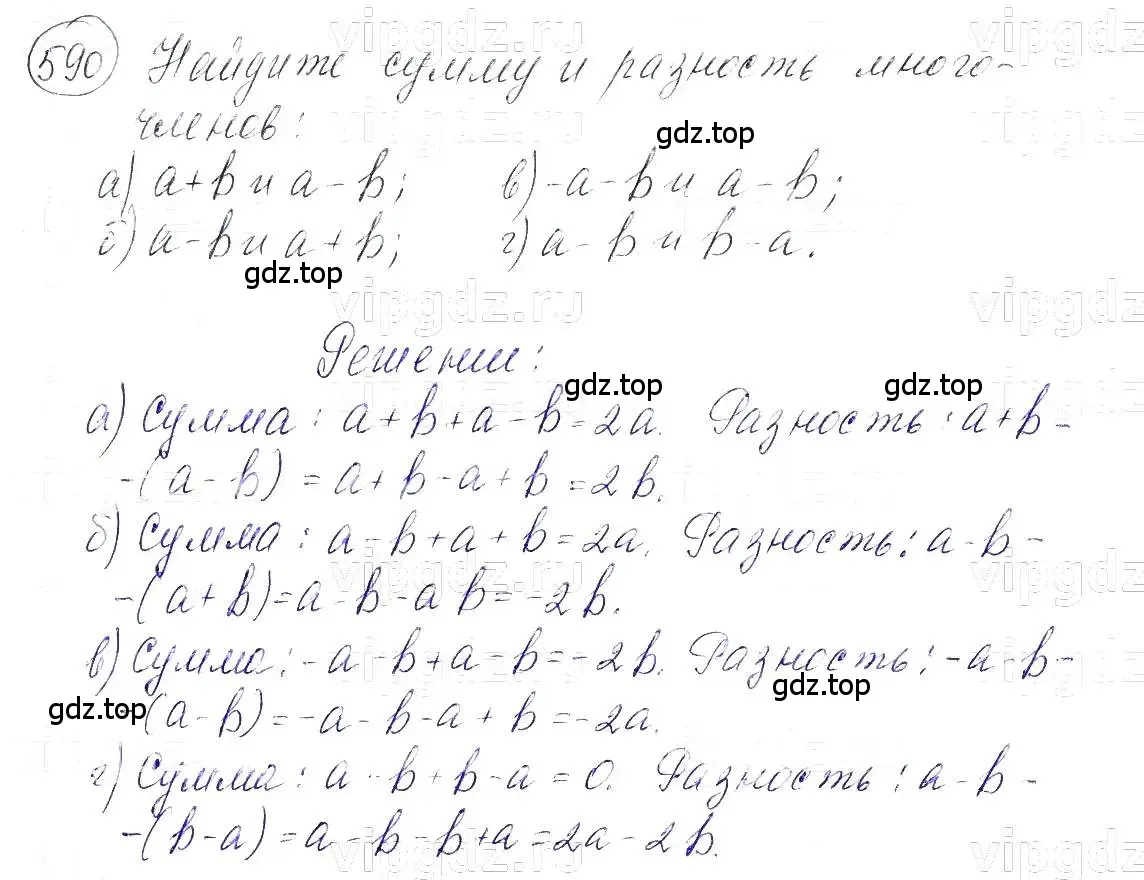 590 Найдите сумму и разность много-
членов:
а) a+b и a-b; в) -a-b и a-b;
б) a-b и a+b; г) a-b и b-a.
Решении:
а) Сумма: a+b+a-b=2a. Разность: a+b-
-(a-b) = a+b-a+b=2b.
б) Сумма: a-b+a+b=2a. Разность: a-b-
-(a+b)=a-b-a b=-2b.
в) Сумма: -a-b+a-b=-2b. Разность: -a-b-
-(a-b)=-a-b-a+b=-2a.
г) Сумма: a-b+b-a=0. Разность: a-b-
-(b-a)=a-b-b+a=2a-2b.
gdz.top
gdz.top
gdz.top
gdz.top
gdz.top
gdz.top
vipgdz.ru
vipgdz.ru
vipgdz.ru
vipgdz.ru
vipgdz.ru